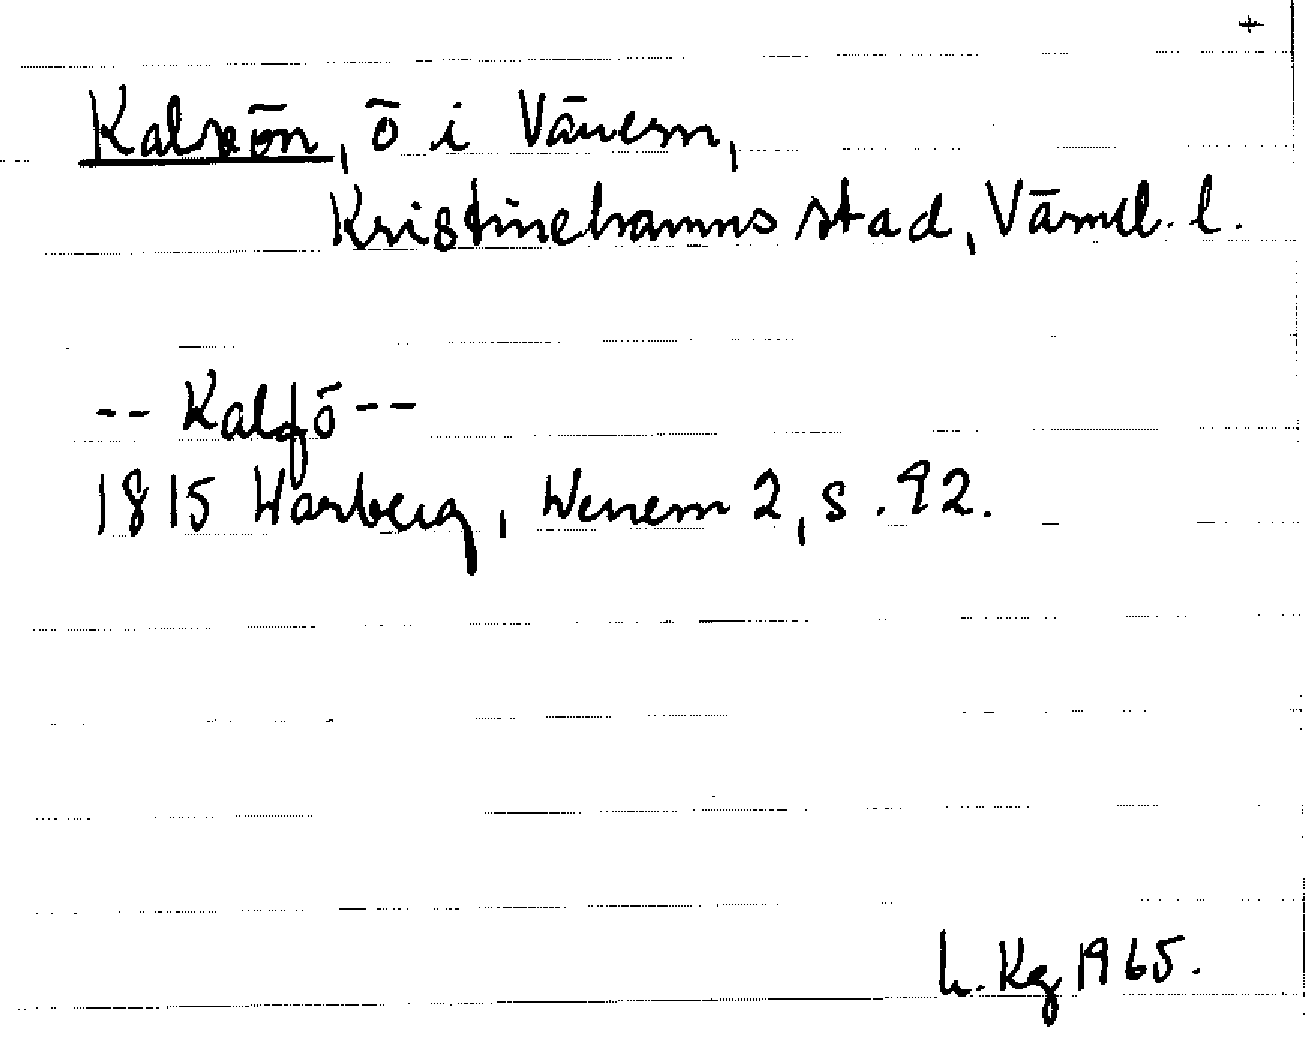 +
Kalvön, ö i Vänern,
Kristinehamns stad, Värml. l.
-- Kalfö --
1815 Warberg, Wenern 2, s. 92.
L. Kg 1965.